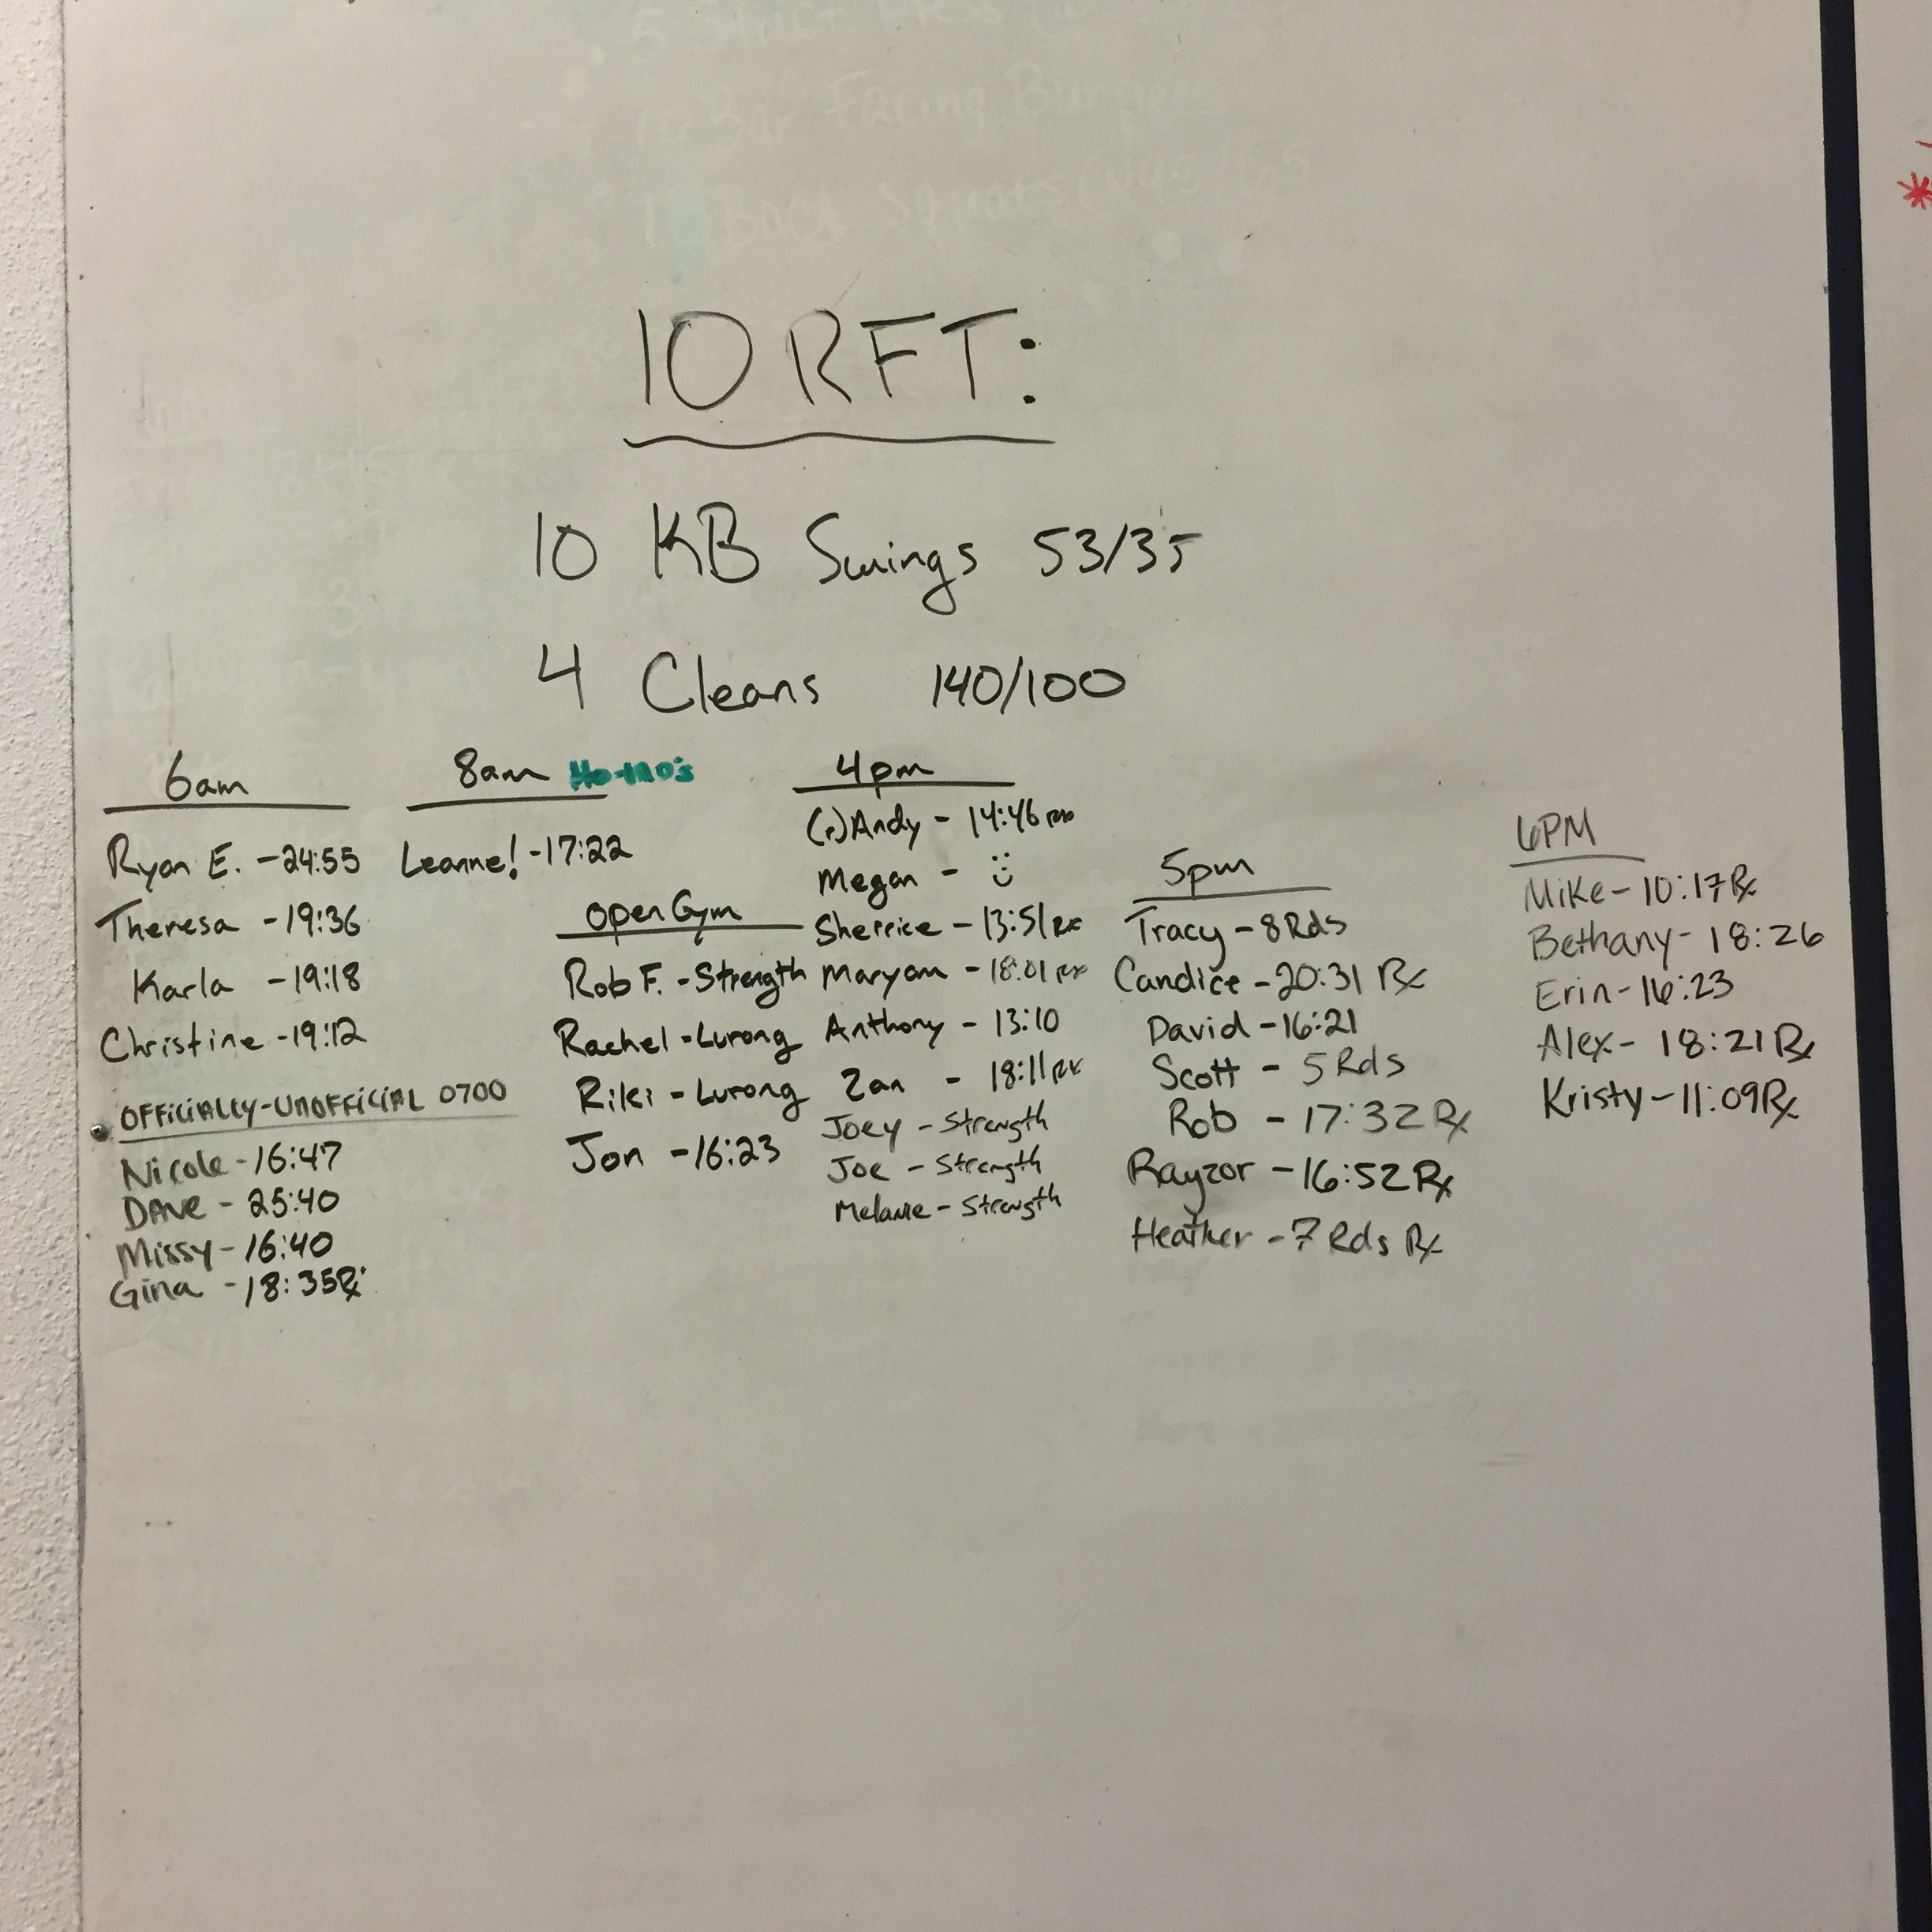 5 Strict Press
10 Bar Facing Burpees
Back Squats
10 RFT:
10 KB Swings 53/35
4 Cleans 140/100
6am
Ryan E. - 24:55
Theresa - 19:36
Karla - 19:18
Christine - 19:12
OFFICIALLY-UNOFFICIAL 0700
Nicole - 16:47
Dave - 25:40
Missy - 16:40
Gina - 18:35 Rx
8am
Leanne! - 17:22
Open Gym
Rob F. - Strength
Rachel - Lurong
Riki - Lurong
Jon - 16:23
4pm
(r)Andy - 14:46
Megan - :)
Sherrice - 13:51 RX
Maryam - 18:01 RX
Anthony - 13:10
Zan - 18:11 RX
Joey - Strength
Joe - Strength
Melanie - Strength
5pm
Tracy - 8 Rds
Candice - 20:31 Rx
David - 16:21
Scott - 5 Rds
Rob - 17:32 Rx
Rayzor - 16:52 Rx
Heather - 7 Rds Rx
6PM
Mike - 10:17 Rx
Bethany - 18:26
Erin - 16:23
Alex - 18:21 Rx
Kristy - 11:09 Rx